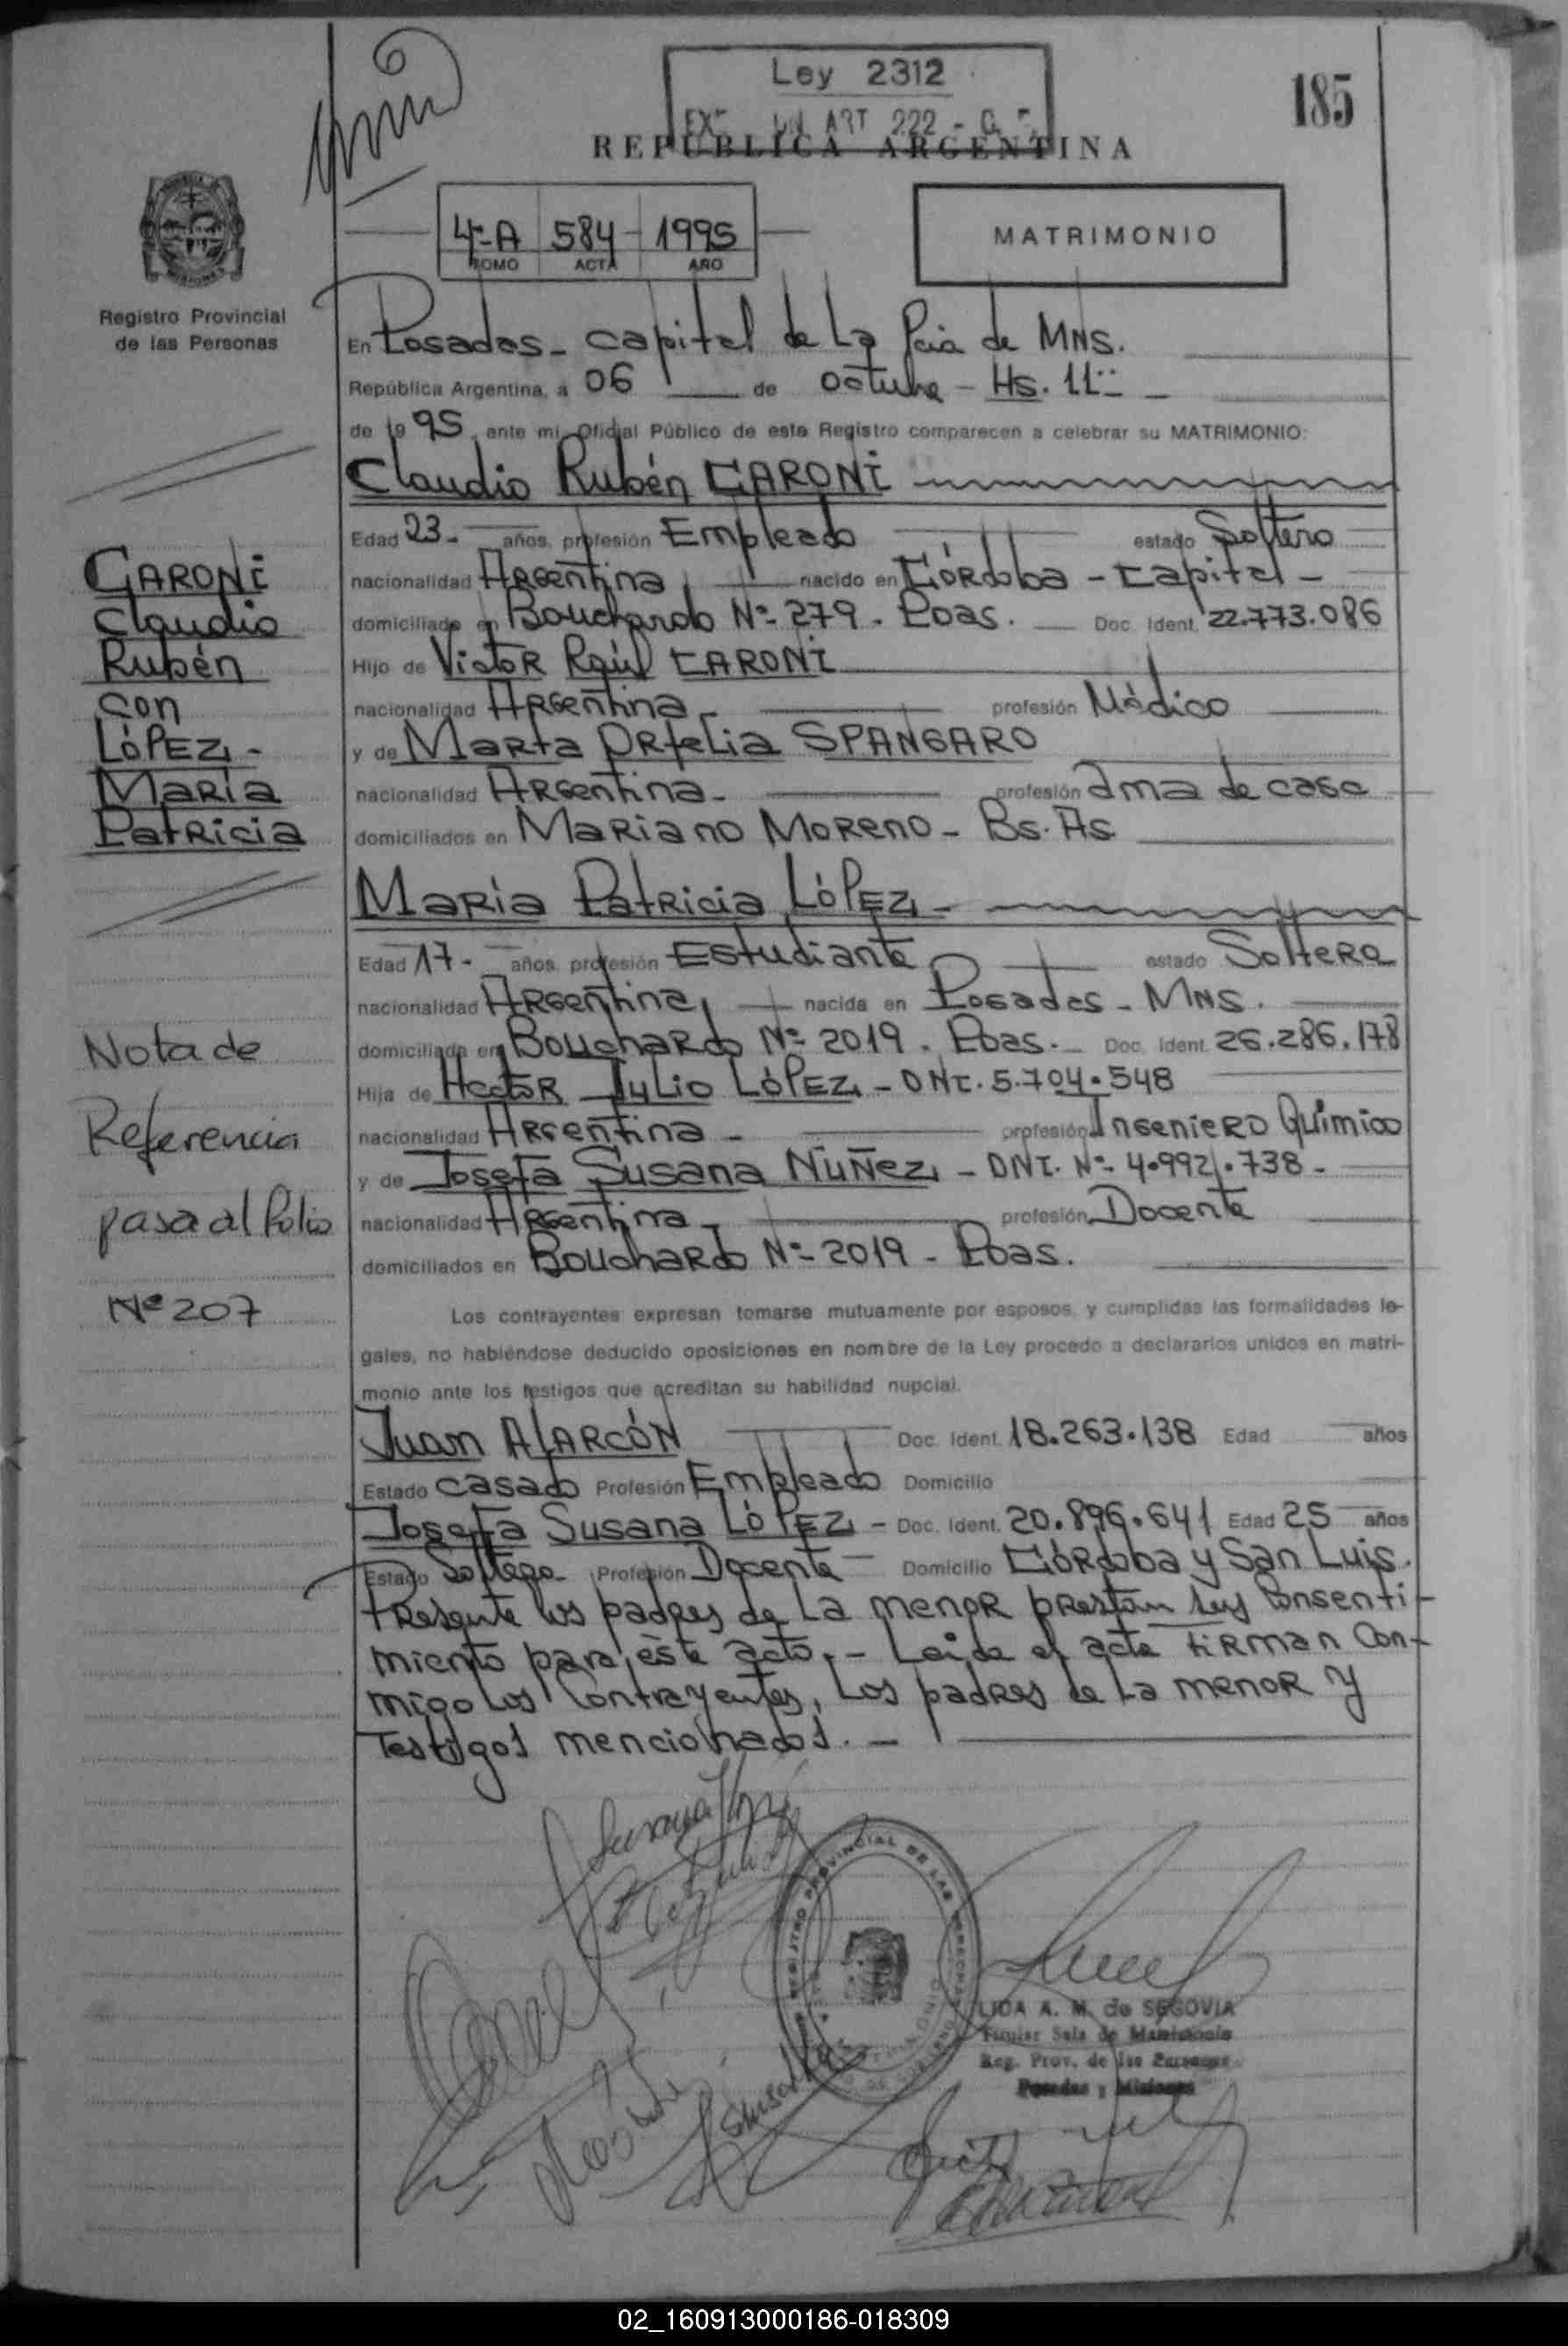 Ley 2312
ART 222 -
185
REPUBLICA ARGENTINA
4º-A 584 1995
TOMO ACTA AÑO
MATRIMONIO
Registro Provincial
de las Personas
En Posadas - Capital de La Pcia de MNS.
República Argentina, a 06 de octubre - Hs. 11
de 1995, ante mi, Oficial Público de este Registro comparecen a celebrar su MATRIMONIO:
Claudio Rubén CARONI
Edad 23- años, profesión Empleado estado Soltero
nacionalidad Argentina nacido en Córdoba - Capital -
domiciliado en Bouchardo Nº- 279. Pdas. Doc. Ident. 22.773.086
Hijo de Victor Raúl CARONI
nacionalidad Argentina - profesión Médico
y de Marta Orfelia SPANGARO
nacionalidad Argentina - profesión ama de casa
domiciliados en Mariano Moreno - Bs. As
María Patricia López -
Edad 17- años, profesión Estudiante estado Soltera
nacionalidad Argentina, nacida en Posadas - MNS.
domiciliada en Bouchardo Nº- 2019. Pdas. - Doc. Ident. 26.286.178
Hija de Hector Julio López - DNI. 5.704.548
nacionalidad Argentina - profesión Ingeniero Químico
y de Josefa Susana Nuñez - DNI. Nº- 4.992.738 -
nacionalidad Argentina - profesión Docente
domiciliados en Bouchardo Nº- 2019 - Pdas.
Los contrayentes expresan tomarse mutuamente por esposos, y cumplidas las formalidades le-
gales, no habiéndose deducido oposiciones en nombre de la Ley procedo a declararlos unidos en matri-
monio ante los testigos que acreditan su habilidad nupcial.
Juan ALARCÓN Doc. Ident. 18.263.138 Edad años
Estado Casado Profesión Empleado Domicilio
Josefa Susana López - Doc. Ident. 20.896.641 Edad 25 años
Estado Soltera - Profesión Docente - Domicilio Córdoba y San Luis.
Presente los padres de La menor prestan sus Consenti-
miento para éste acto. - Leida el acta firman Con-
migo Los Contrayentes, Los padres de La menor y
Testigos mencionados. -
CARONI
Claudio
Rubén
con
López -
María
Patricia
Nota de
Referencia
pasa al folio
Nº 207
REGISTRO PROVINCIAL DE LAS PERSONAS
LIDA A. M. de SEGOVIA
Titular Sala de Matrimonio
Reg. Prov. de las Personas
Posadas - Misiones
02_160913000186-018309